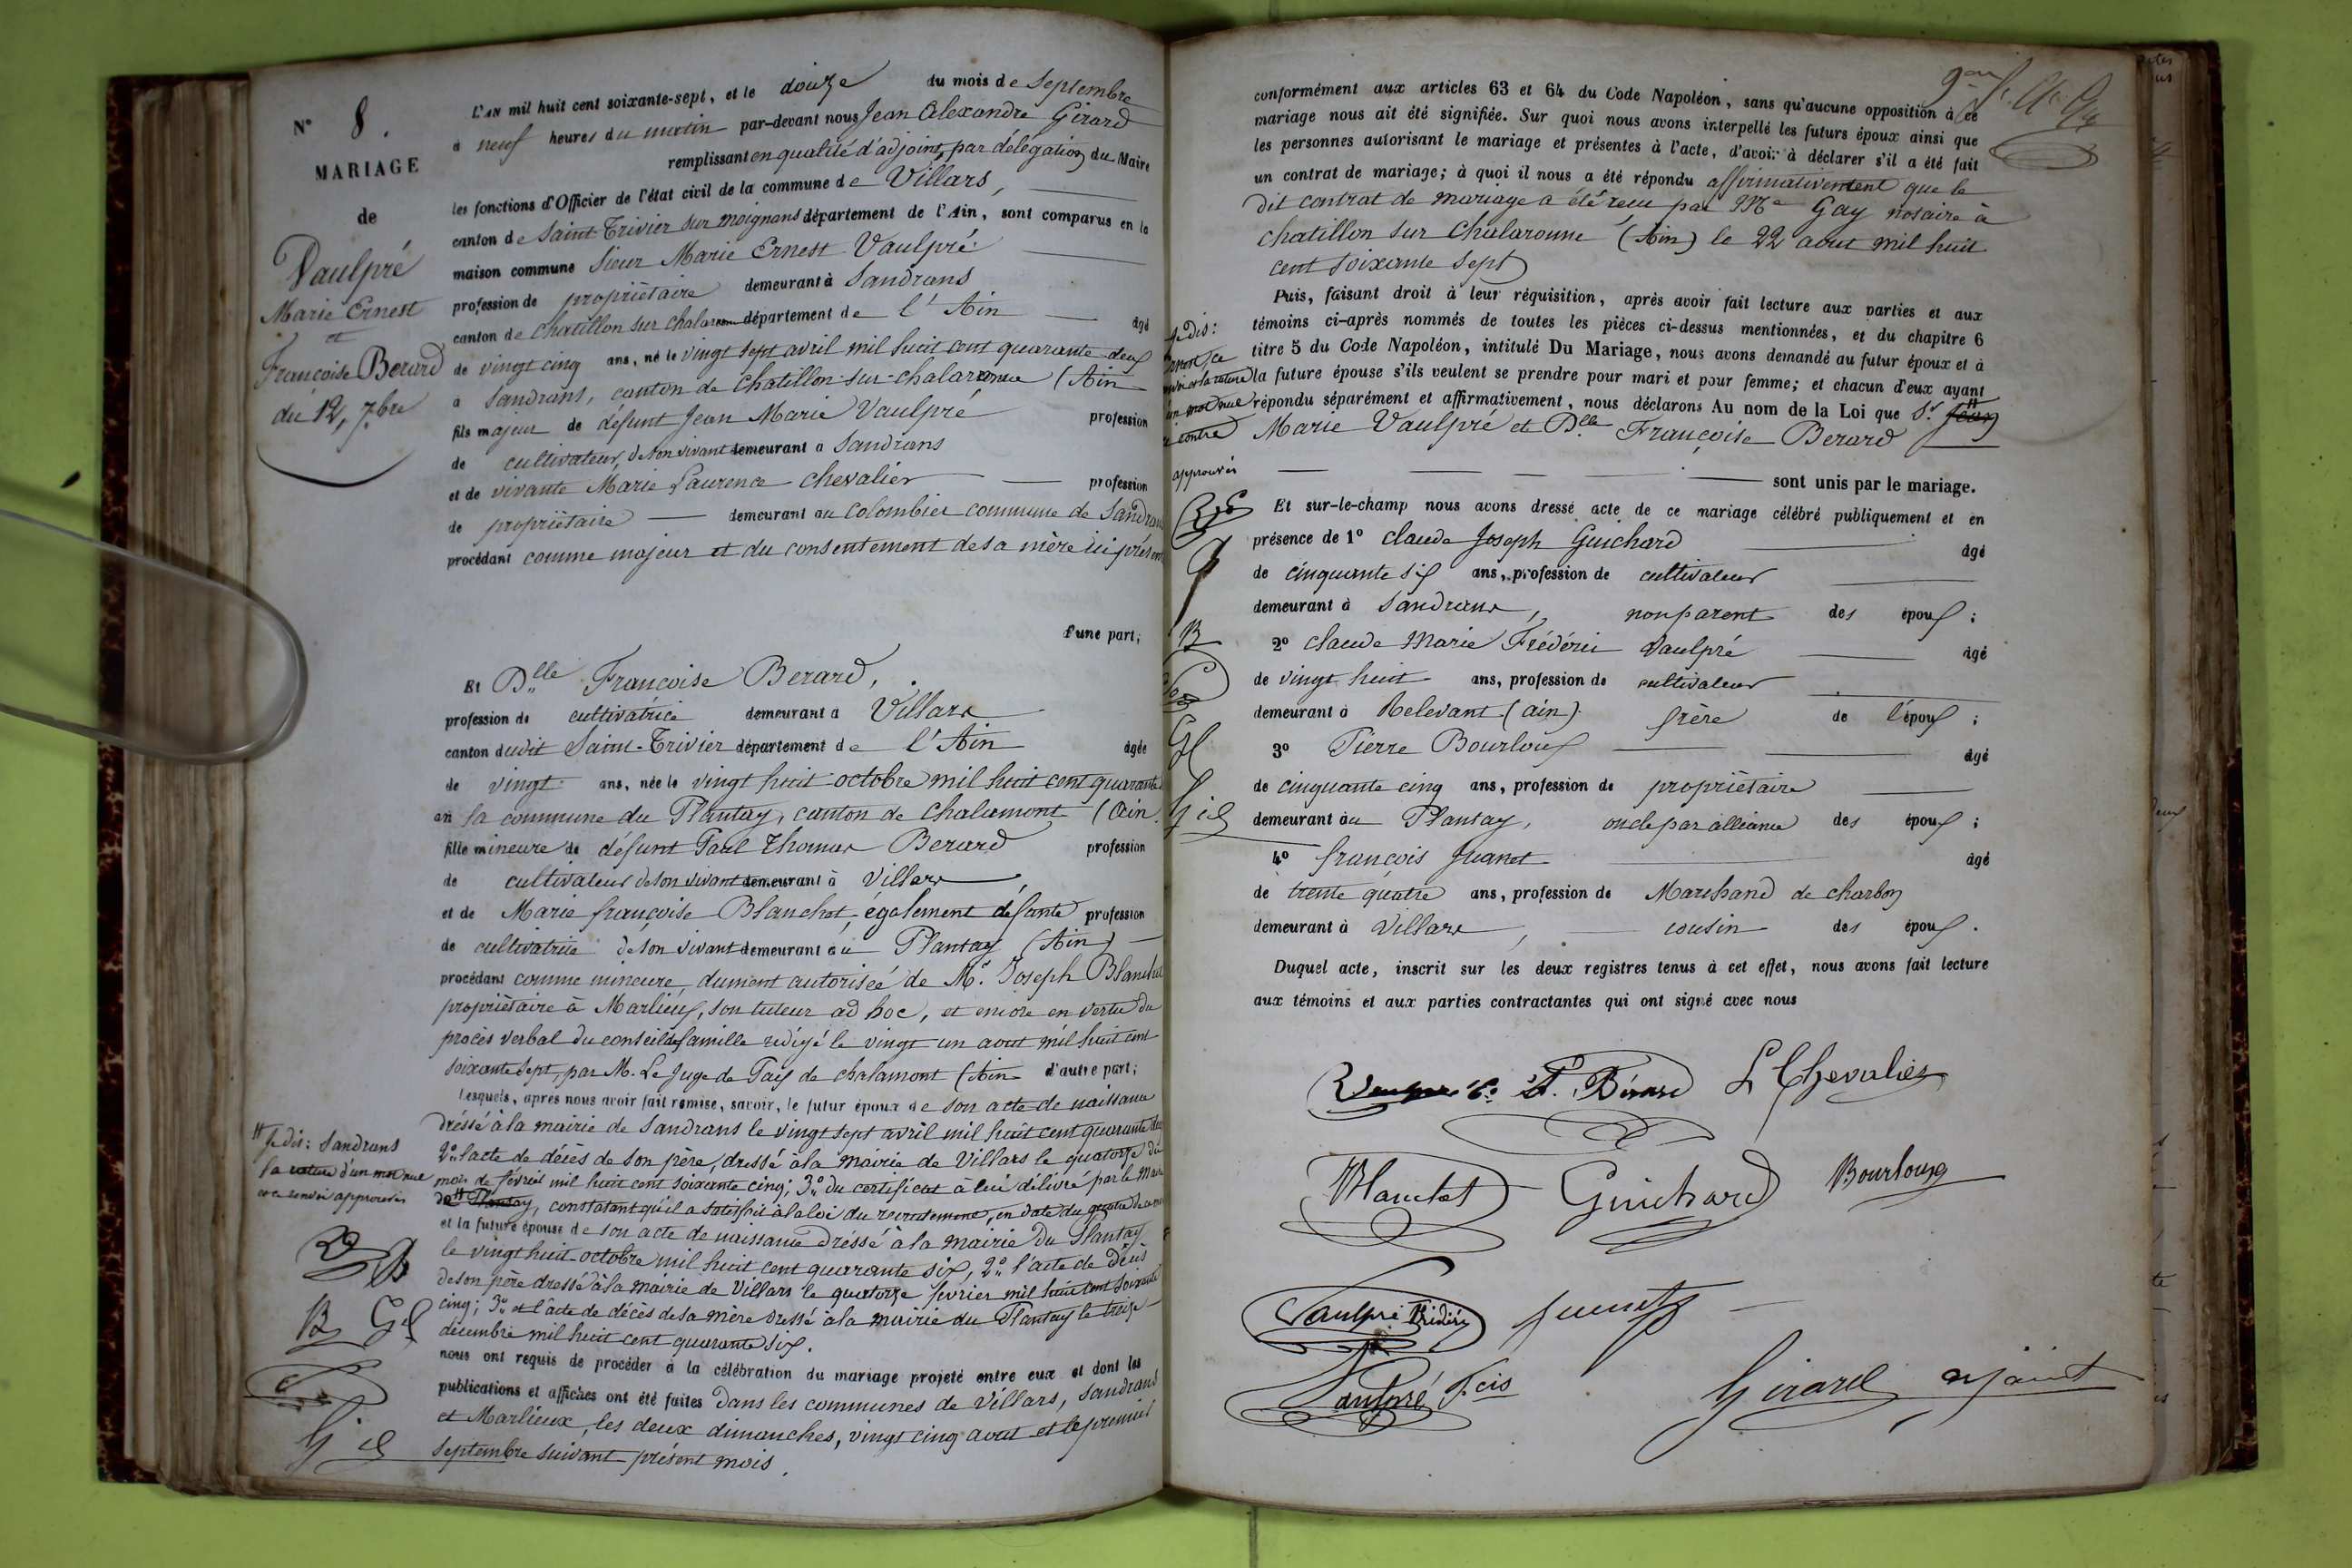 N° 8.
MARIAGE
de
Vaulpré
Marie Ernest
et
Françoise Berard
du 12, 7.bre
L'AN mil huit cent soixante-sept, et le douze du mois de Septembre
à neuf heures du matin par-devant nous Jean Alexandre Girard
remplissant en qualité d'adjoint, par délégation du Maire
les fonctions d'Officier de l'état civil de la commune de Villars,
canton de Saint Trivier sur moignans département de l'Ain, sont comparus en la
maison commune Sieur Marie Ernest Vaulpré
profession de propriétaire demeurant à Sandrans
canton de chatillon sur chalaronne département de l'Ain âgé
de vingt cinq ans, né le vingt sept avril mil huit cent quarante deux
à Sandrans, canton de chatillon-sur-chalaronne (Ain
fils majeur de défunt Jean Marie Vaulpré profession
de cultivateur, de son vivant demeurant à Sandrans
et de vivante Marie Laurence Chevalier profession
de propriétaire demeurant au Colombier commune de Sandrans
procédant comme majeur et du consentement de sa mère ici présente
d'une part;
Et Dlle Françoise Berard,
profession de cultivatrice demeurant à Villars
canton dudit Saint-Trivier département de l'Ain âgée
de vingt ans, née le vingt huit octobre mil huit cent quarante
en la commune du Plantay, canton de Chalamont (Ain
fille mineure de défunt Paul Thomas Berard profession
de cultivateur de son vivant demeurant à Villars
et de Marie françoise Blanchet, également défunte profession
de cultivatrice de son vivant demeurant au Plantay (Ain)
procédant comme mineure, dument autorisée de Mr. Joseph Blanchet
propriétaire à Marlieux, son tuteur ad hoc, et encore en vertu du
procès verbal du conseil de famille rédigé le vingt un aout mil huit cent
soixante sept, par M. Le Juge de Paix de chalamont (Ain d'autre part;
Lesquels, après nous avoir fait remise, savoir, le futur époux de son acte de naissance
dréssé à la mairie de Sandrans le vingt sept avril mil huit cent quarante deux
2° l'acte de décès de son père, dressé à la mairie de Villars le quatorze du
mois de février mil huit cent soixante cinq; 3° du certificat à lui délivré par le Maire
de Plantay, constatant qu'il a satisfait à la loi du recrutement, en date du quatre
et la future épouse de son acte de naissance dressé à la mairie du Plantay
le vingt huit octobre mil huit cent quarante six, 2° l'acte de décès
de son père dressé à la mairie de Villars le quatorze fevrier mil huit cent soixante
cinq; 3° et l'acte de décès de sa mère dressé à la mairie du Plantay le treize
décembre mil huit cent quarante six.
nous ont requis de procéder à la célébration du mariage projeté entre eux et dont les
publications et affiches ont été faites dans les communes de Villars, Sandrans
et Marlieux, les deux dimanches, vingt cinq aout et le premier
septembre suivant présent mois.
Je dis: Sandrans
la rature d'un mot nul
et ce renvoi approuvés
conformément aux articles 63 et 64 du Code Napoléon, sans qu'aucune opposition à ce
mariage nous ait été signifiée. Sur quoi nous avons interpellé les futurs époux ainsi que
les personnes autorisant le mariage et présentes à l'acte, d'avoir à déclarer s'il a été fait
un contrat de mariage; à quoi il nous a été répondu affirmativement que le
dit contrat de mariage a été reçu par Me Gay notaire à
Chatillon sur Chalaronne (Ain) le 22 aout mil huit
cent soixante sept
Puis, faisant droit à leur réquisition, après avoir fait lecture aux parties et aux
témoins ci-après nommés de toutes les pièces ci-dessus mentionnées, et du chapitre 6
titre 5 du Code Napoléon, intitulé Du Mariage, nous avons demandé au futur époux et à
la future épouse s'ils veulent se prendre pour mari et pour femme; et chacun d'eux ayant
répondu séparément et affirmativement, nous déclarons Au nom de la Loi que Sr Jean
Marie Vaulpré et Dlle Françoise Berard
sont unis par le mariage.
Je dis:
Ernest, ce
renvoi et la rature
d'un mot nul
ci contre
approuvés
Et sur-le-champ nous avons dressé acte de ce mariage célébré publiquement et en
présence de 1° Claude Joseph Guichard âgé
de cinquante six ans, profession de cultivateur
demeurant à Sandrans, non parent des époux;
2° Claude Marie Frédéric Vaulpré âgé
de vingt huit ans, profession de cultivateur
demeurant à Relevant (ain) frère de l'époux;
3° Pierre Bourloux âgé
de cinquante cinq ans, profession de propriétaire
demeurant au Plantay, oncle par alliance des époux;
4° françois Juanet âgé
de trente quatre ans, profession de Marchand de charbon
demeurant à Villars, cousin des époux.
Duquel acte, inscrit sur les deux registres tenus à cet effet, nous avons fait lecture
aux témoins et aux parties contractantes qui ont signé avec nous
F. Bérard L Chevalier
Blanchet Guichard Bourloux
Vaulpré Frédéric Juenet
Vaulpré Fcois Girard adjoint